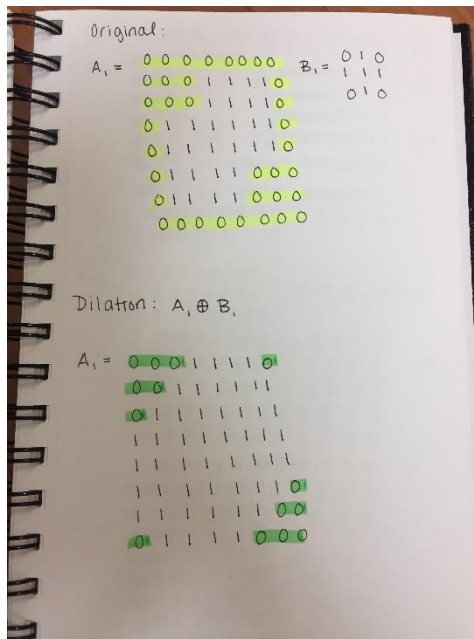 Original:
A₁ = 0 0 0 0 0 0 0 0 B₁ = 0 1 0
0 0 0 1 1 1 1 0 1 1 1
0 0 0 1 1 1 1 0 0 1 0
0 1 1 1 1 1 1 0
0 1 1 1 1 1 1 0
0 1 1 1 1 0 0 0
0 1 1 1 1 0 0 0
0 0 0 0 0 0 0 0
Dilation: A₁ ⊕ B₁
A₁ = 0 0 0 1 1 1 1 0
0 0 1 1 1 1 1 1
0 1 1 1 1 1 1 1
1 1 1 1 1 1 1 1
1 1 1 1 1 1 1 1
1 1 1 1 1 1 1 0
1 1 1 1 1 1 0 0
0 1 1 1 1 0 0 0